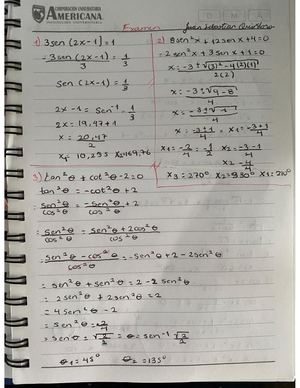 CORPORACIÓN UNIVERSITARIA
AMERICANA
D M A
Examen
Juan Sebastian
1) 3sen(2x-1)=1
3sen(2x-1) = 1/3
sen(2x-1) = 1/3
2x-1 = sen⁻¹ 1/3
2x = 19,47+1
x = 20,47/2
x₁ = 10,235 x₂=169,76
2) 8sen²x+12senx+4=0
= 2sen²x+3senx+1=0
x = -3±√(3)²-4(2)(1)/2(2)
x = -3±√9-8/4
x = -3±1/4 = x₁ = -3+1/4
x₁ = -2/4 = -1/2 x₂ = -3-1/4
x₂ = -4/4
x₃ = 270° x₂=330° x₁=210°
3) tan²θ + cot²θ-2=0
tan²θ = -cot²θ+2
= sen²θ/cos²θ = -sen²θ/cos²θ +2
: sen²θ/cos²θ = sen²θ+2cos²θ/cos²θ
= sen²θ - cos²θ/cos²θ = -sen²θ+2-2sen²θ
= sen²θ + sen²θ = 2-2sen²θ
= 2sen²θ + 2sen²θ = 2
= 4sen²θ = 2
= sen²θ = 2/4
= senθ = √2/2 = θ = sen⁻¹ √2/2
θ₁ = 45° θ₂ = 135°